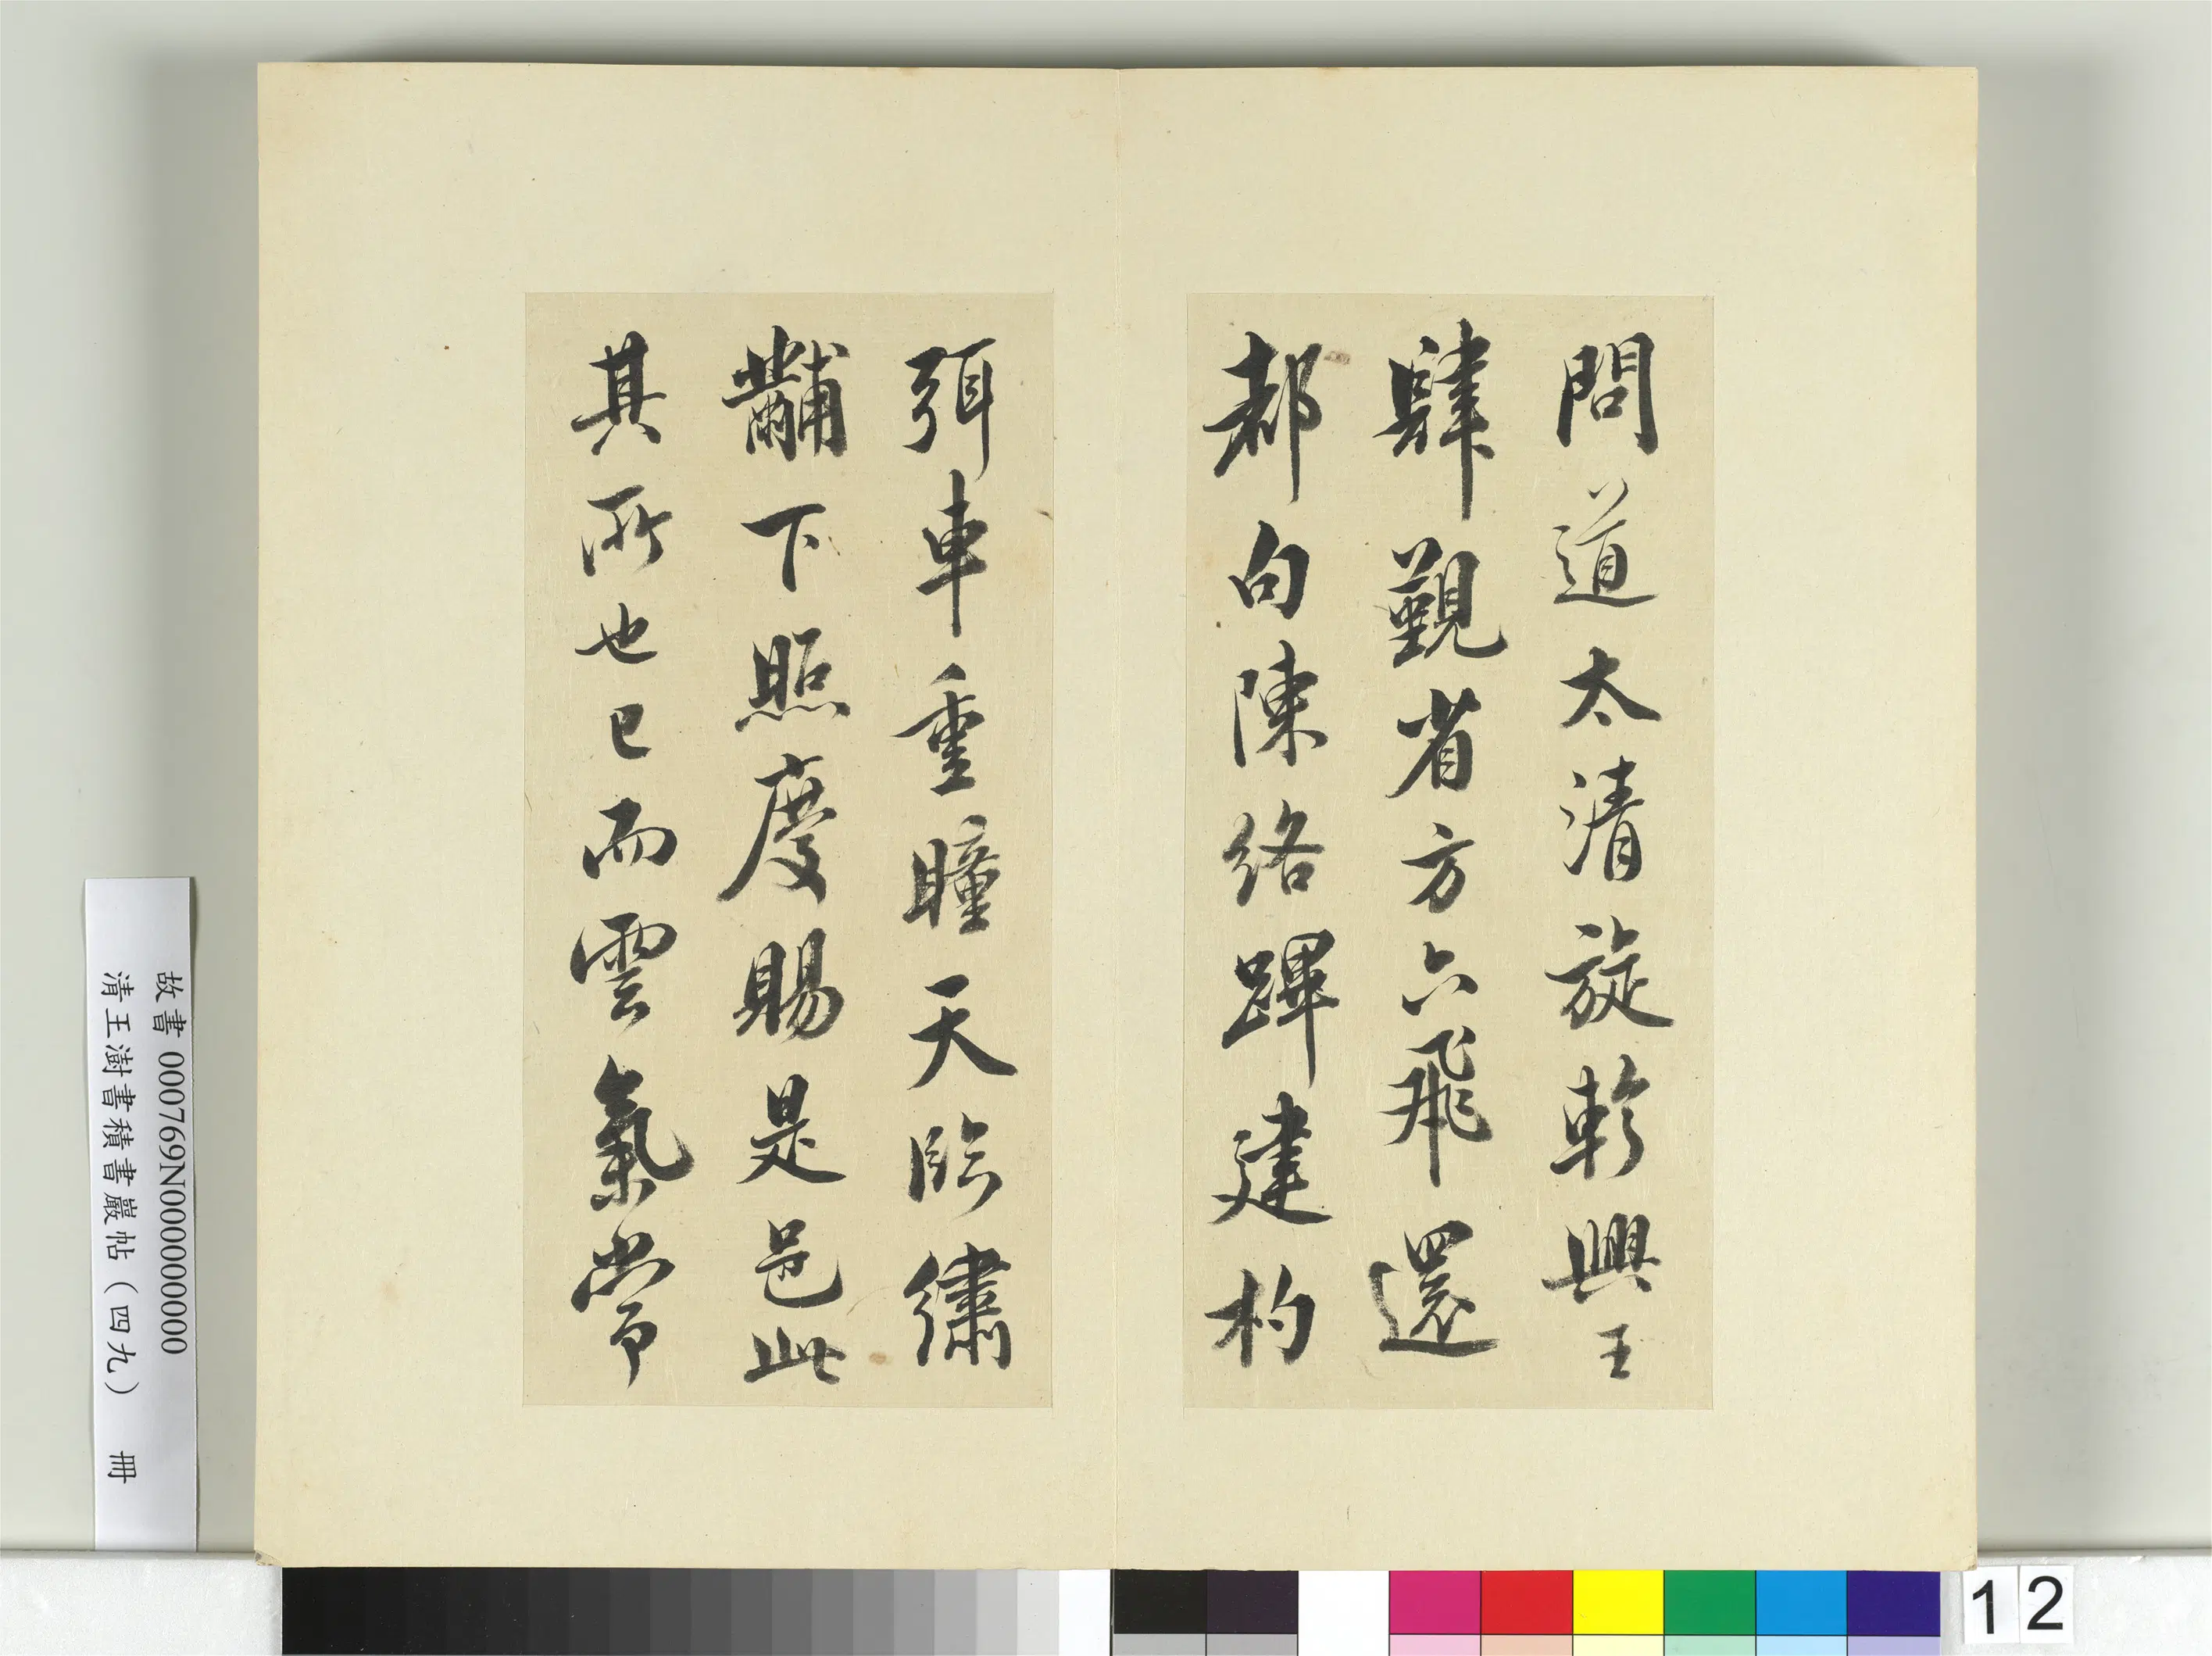 問道太清旋軫興王
肆覲省方六飛還
都句陳絡蹕建杓
弭車重瞳天臨繡
黼下照慶賜是邑此
其所也已而雲氣常
故書 000769N000000000
清王澍書積書巖帖（四九） 冊
12